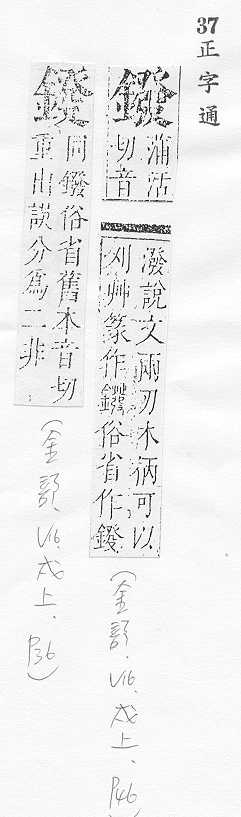 37正字通
鏺
蒲活
切音
潑說文兩刃木柄可以
刈艸篆作鏺俗省作鏺
(金部.V16.戌上.P46)
同鏺俗省舊本音切
重出誤分爲二非
(金部.V16.戌上.P36)